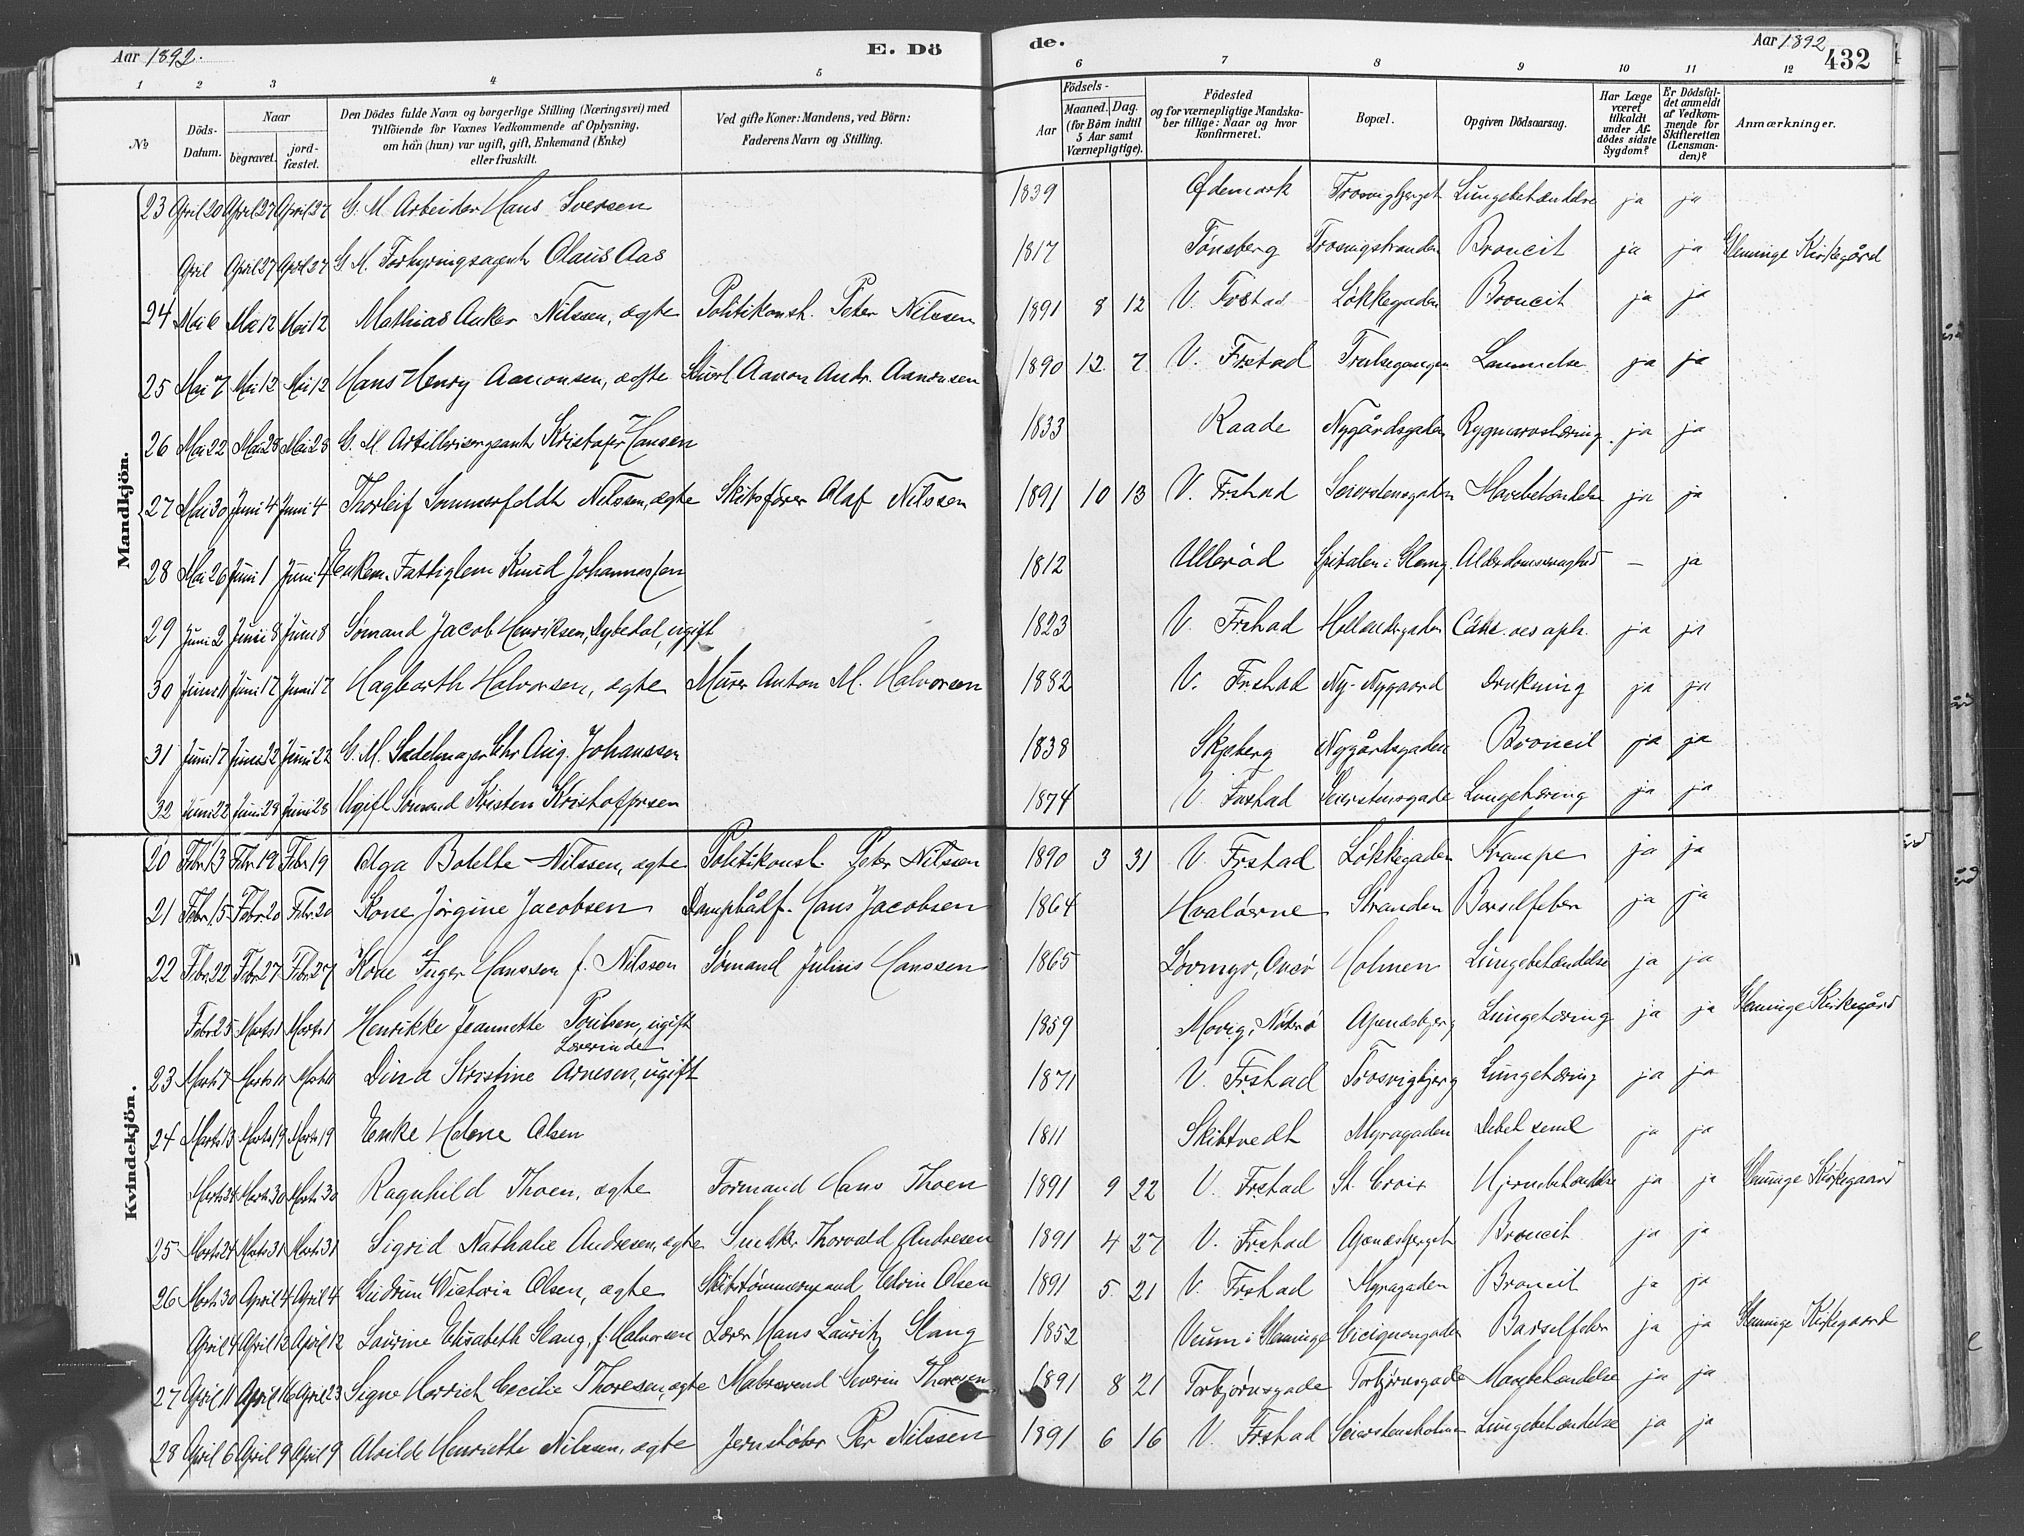 Aar 1892. E. Dö de. Aar 1892 432
1 2 3 4 5 6 7 8 9 10 11 12
No Döds-Datum. Naar begravet. jordfæstet. Den Dödes fulde Navn og borgerlige Stilling (Næringsvei) med Tilföiende for Voxnes Vedkommende af Oplysning, om han (hun) var ugift, gift, Enkemand (Enke) eller fraskilt. Ved gifte Koner: Mandens, ved Börn: Faderens Navn og Stilling. Aar Födsels- Maaned. Dag. (for Börn indtil 5 Aar samt Værnepligtige). Födested og for værnepligtige Mandskaber tillige: Naar og hvor konfirmeret. Bopæl. Opgiven Dödsaarsag. Har Læge været tilkaldt under Afdödes sidste Sygdom? Er Dödsfaldet anmeldt af Vedkommende for Skifteretten (Lensmanden)? Anmærkninger.
Mandkjön.
23 April 20 April 27 April 27 G. M. Arbeider Hans Iversen 1839 Ødemark Trosvigberget Lungebetændelse ja ja
April April 27 April 27 G. M. Forhyringsagent Olaus Aas 1817 Tønsberg Trosvigstranden Broncit ja ja Glemminge Kirkegård
24 Mai 6 Mai 12 Mai 12 Mathias Anker Nilssen, ægte Politikonst. Peter Nilssen 1891 8 12 V. Frstad Løkkegaden Broncit ja ja
25 Mai 7 Mai 12 Mai 12 Hans Henry Aanonsen, ægte Aanon Andr. Aanonsen 1890 12 7 V. Frstad Trulsegangen Lammelse ja ja
26 Mai 22 Mai 28 Mai 28 G. M. Artillerisergeant Kristofer Hansen 1833 Raade Nygårdsgaden Rygmarvstæring ja ja
27 Mai 30 Juni 4 Juni 4 Thorleif Sommerfeldt Nilssen, ægte Skibsfører Olaf Nilssen 1891 10 13 V. Frstad Seierstensgaden Mavebetændelse ja ja
28 Mai 26 Juni 1 Juni 4 Enkem. Fattiglem Knud Johannessen 1812 Ullerød Spitalen i Glemg. Alderdomssvaghed — ja
29 Juni 2 Juni 8 Juni 8 Sømand Jacob Henriksen Dybedal, ugift 1823 V. Frstad Hollandsgaden Canc. oesoph. ja ja
30 Juni 11 Juni 17 Juni 17 Hagbarth Halvorsen, ægte Murer Anton M. Halvorsen 1882 V. Frstad Ny-Nygaard Drukning ja ja
31 Juni 17 Juni 22 Juni 22 G. M. Sadelmager Chr Aug. Johanssen 1838 Skjeberg Nygårdsgaden Broncit ja ja
32 Juni 22 Juni 28 Juni 28 Ugift Sømand Kristen Kristoffersen 1874 V. Frstad Seierstensgade Lungetæring ja ja
Kvindekjön.
20 Febr. 13 Febr. 19 Febr. 19 Olga Botelte Nilssen, ægte Politikonst. Peter Nilssen 1890 3 31 V. Frstad Løkkegaden Krampe ja ja
21 Febr. 15 Febr. 20 Febr. 20 Kone Jørgine Jacobsen Dampbådf. Hans Jacobsen 1864 Hvaløerne Stranden Barselfeber ja ja
22 Febr. 22 Febr. 27 Febr. 27 Kone Inger Hanssen f. Nilssen Sømand Julius Hanssen 1865 Onsø Holmen Lungebetændelse ja ja
Febr. 25 Marts 1 Marts 1 Henrikke Jeannette Poulsen, ugift Lærerinde 1859 Movig, Nøterø Apenæsbjerg Lungetæring ja ja Glemminge Kirkegård
23 Marts 7 Marts 11 Marts 11 Dina Kristine Arnesen, ugift 1871 V. Frstad Trosvigbjerg Lungetæring ja ja
24 Marts 13 Marts 19 Marts 19 Enke Helene Olsen 1811 Skibtvedt Myragaden Debil. senil. ja ja
Marts 24 Marts 30 Marts 30 Ragnhild Thoen, ægte Formand Hans Thoen 1891 9 22 V. Frstad St. Croix Hjernebetændelse ja ja Glemminge Kirkegaard
25 Marts 24 Marts 31 Marts 31 Sigrid Nathalie Andresen, ægte Snedker Thorvald Andresen 1891 4 27 V. Frstad Apenæsberget Broncit ja ja
26 Marts 30 April 4 April 4 Gudrun Victoria Olsen, ægte Skibstømmermand Edvin Olsen 1891 5 21 V. Frstad Myragaden Broncit ja ja
April 4 April 12 April 12 Laurine Elisabeth Stang, f. Halvorsen Lærer Hans Lauritz Stang 1852 Veum i Glemminge Cicignongaden Barselfeber ja ja Glemminge Kirkegaard
27 April 11 April 16 April 23 Signe Cecilie Thoresen, ægte Matrosvend Severin Thoresen 1891 8 21 Torbjørnsgade Torbjørnsgade Mavebetændelse ja ja
28 April 6 April 9 April 9 Alvilde Henriette Nilssen, ægte Jernstøber Per Nilssen 1891 6 16 V. Frstad Seierstensholmen Lungebetændelse ja ja